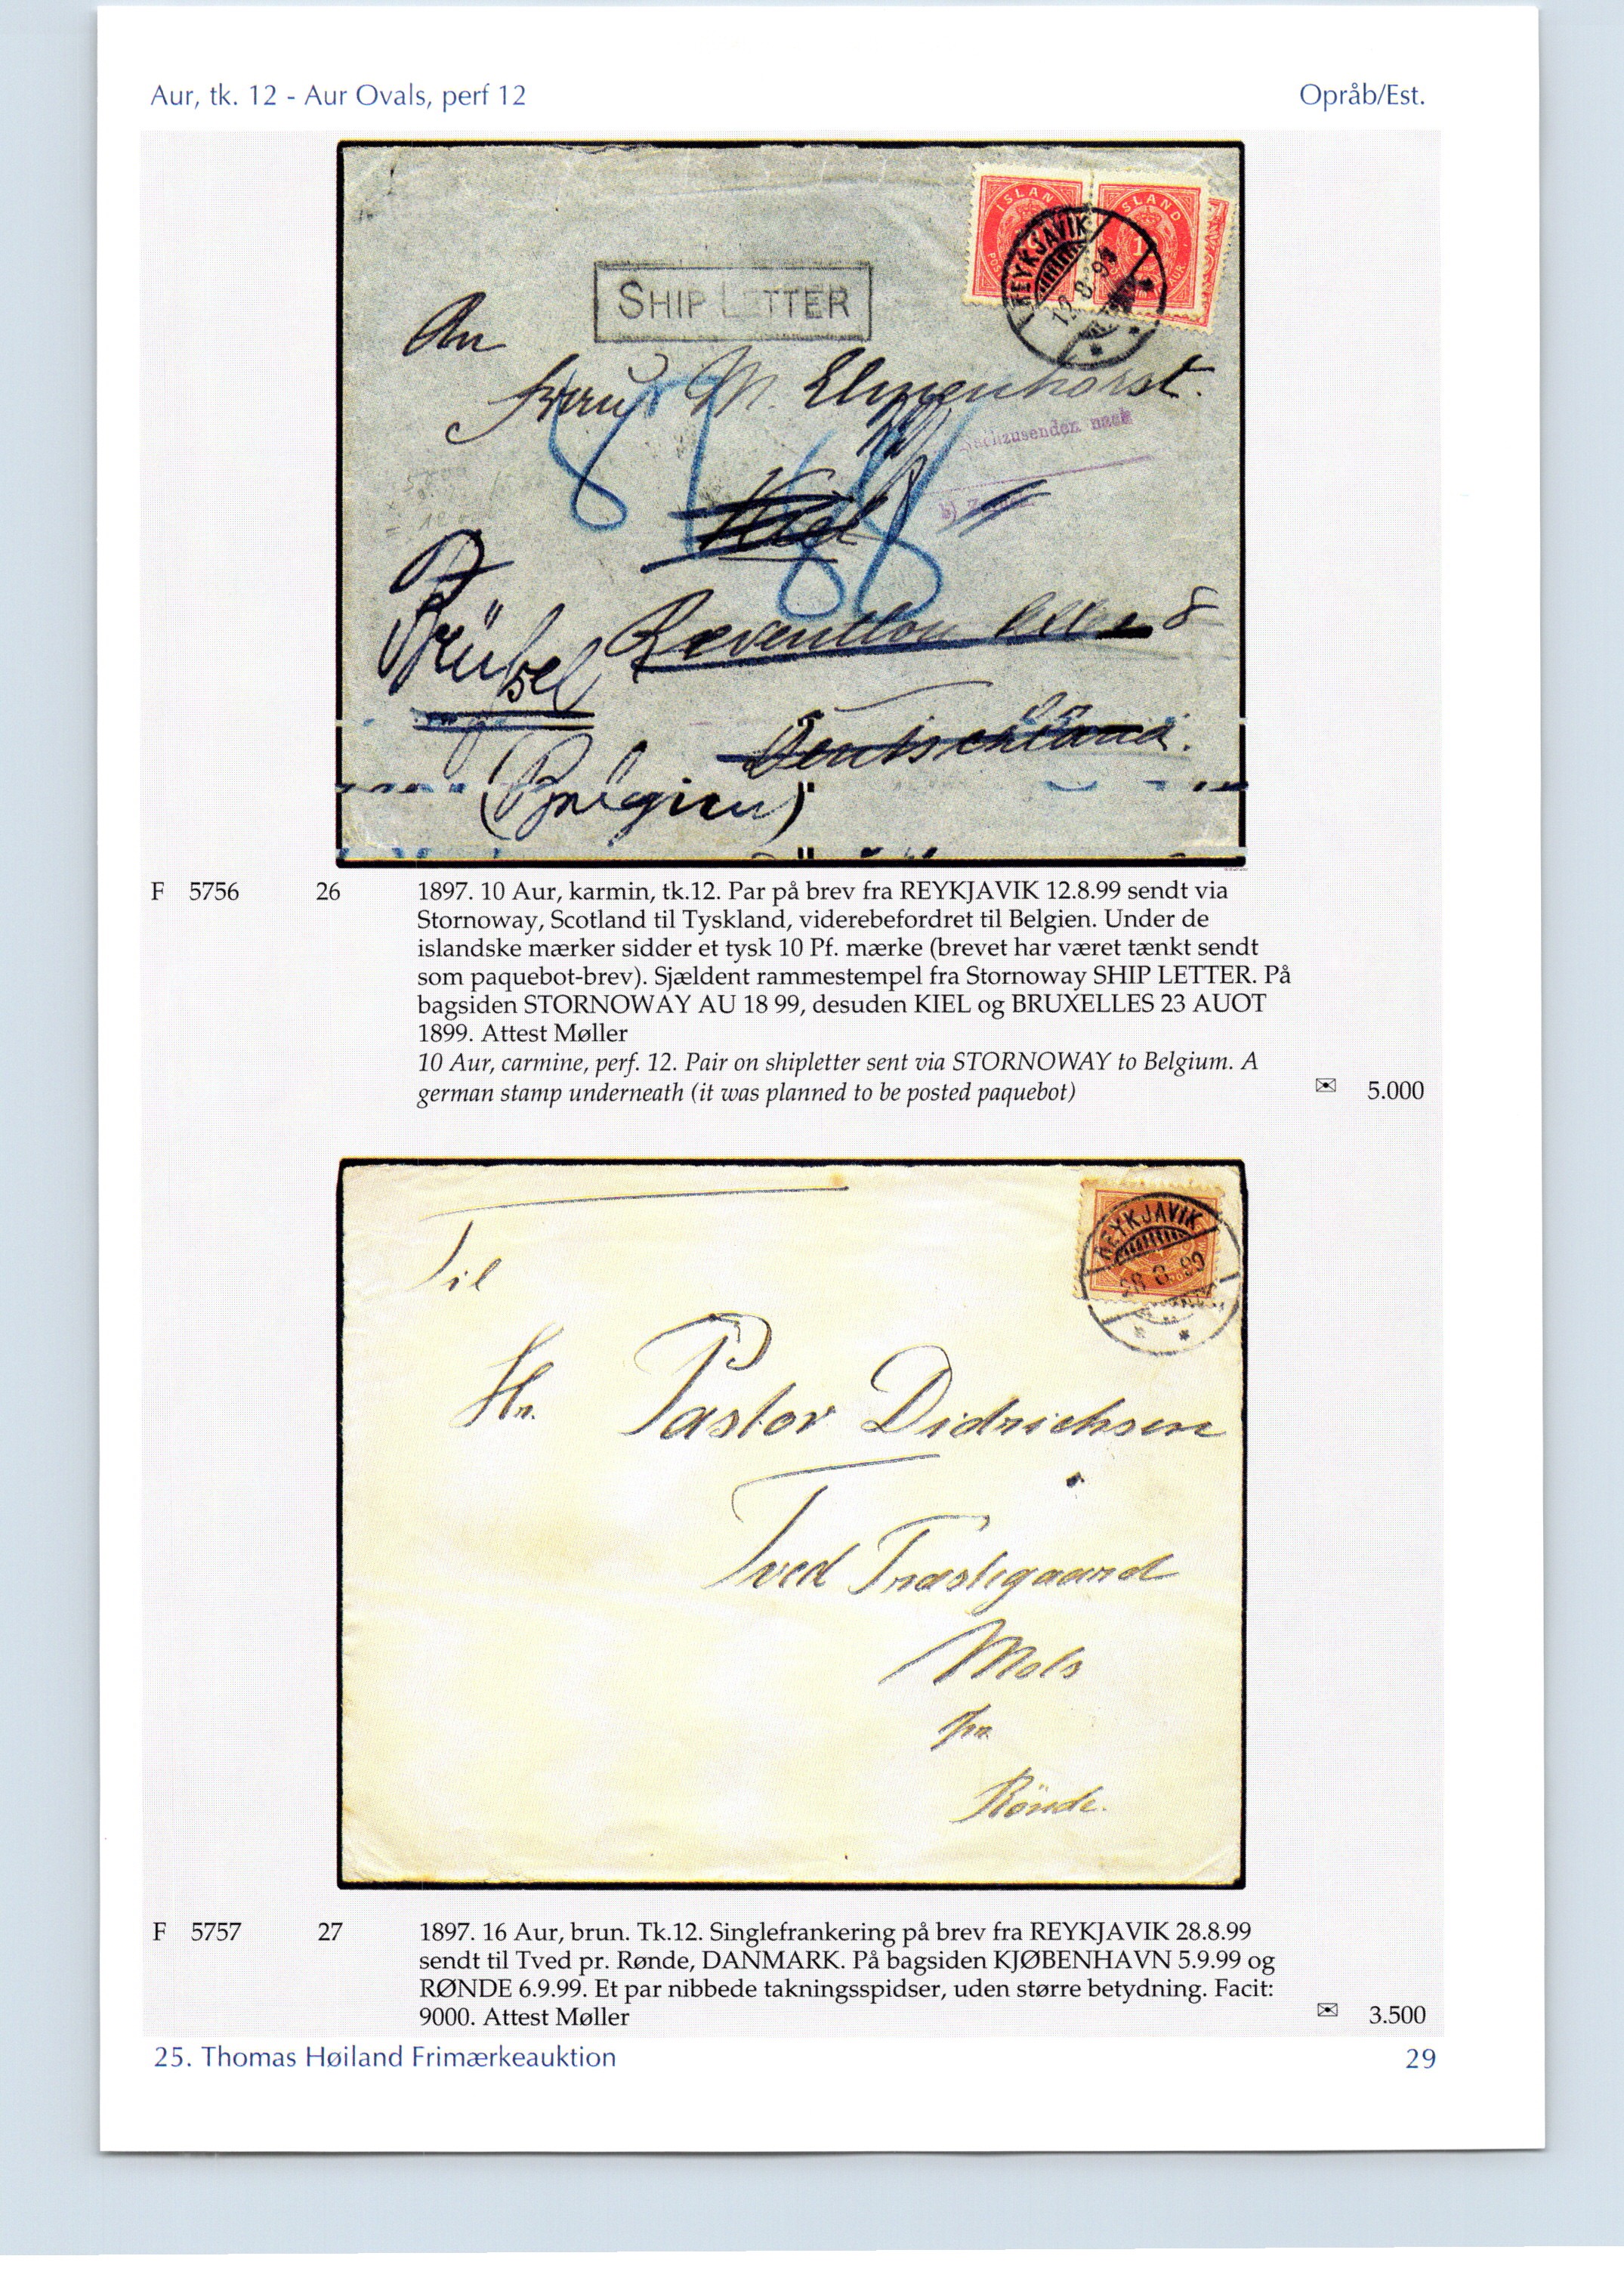 Aur, tk. 12 - Aur Ovals, perf 12
Opråb/Est.
ISLAND
ISLAND
REYKJAVIK
SHIP LETTER
An
Frau M. Elmenhorst.
Nachzusenden nach
87
88
Kiel
Reventlou Allee 8
Deutschland.
(Belgien)
F 5756 26 1897. 10 Aur, karmin, tk.12. Par på brev fra REYKJAVIK 12.8.99 sendt via
Stornoway, Scotland til Tyskland, viderebefordret til Belgien. Under de
islandske mærker sidder et tysk 10 Pf. mærke (brevet har været tænkt sendt
som paquebot-brev). Sjældent rammestempel fra Stornoway SHIP LETTER. På
bagsiden STORNOWAY AU 18 99, desuden KIEL og BRUXELLES 23 AUOT
1899. Attest Møller
10 Aur, carmine, perf. 12. Pair on shipletter sent via STORNOWAY to Belgium. A
german stamp underneath (it was planned to be posted paquebot) 5.000
REYKJAVIK
Til
Hr. Pastor Didrichsen
Tved Præstegaard
Mols
pr.
Rönde.
F 5757 27 1897. 16 Aur, brun. Tk.12. Singlefrankering på brev fra REYKJAVIK 28.8.99
sendt til Tved pr. Rønde, DANMARK. På bagsiden KJØBENHAVN 5.9.99 og
RØNDE 6.9.99. Et par nibbede takningsspidser, uden større betydning. Facit:
9000. Attest Møller 3.500
25. Thomas Høiland Frimærkeauktion
29